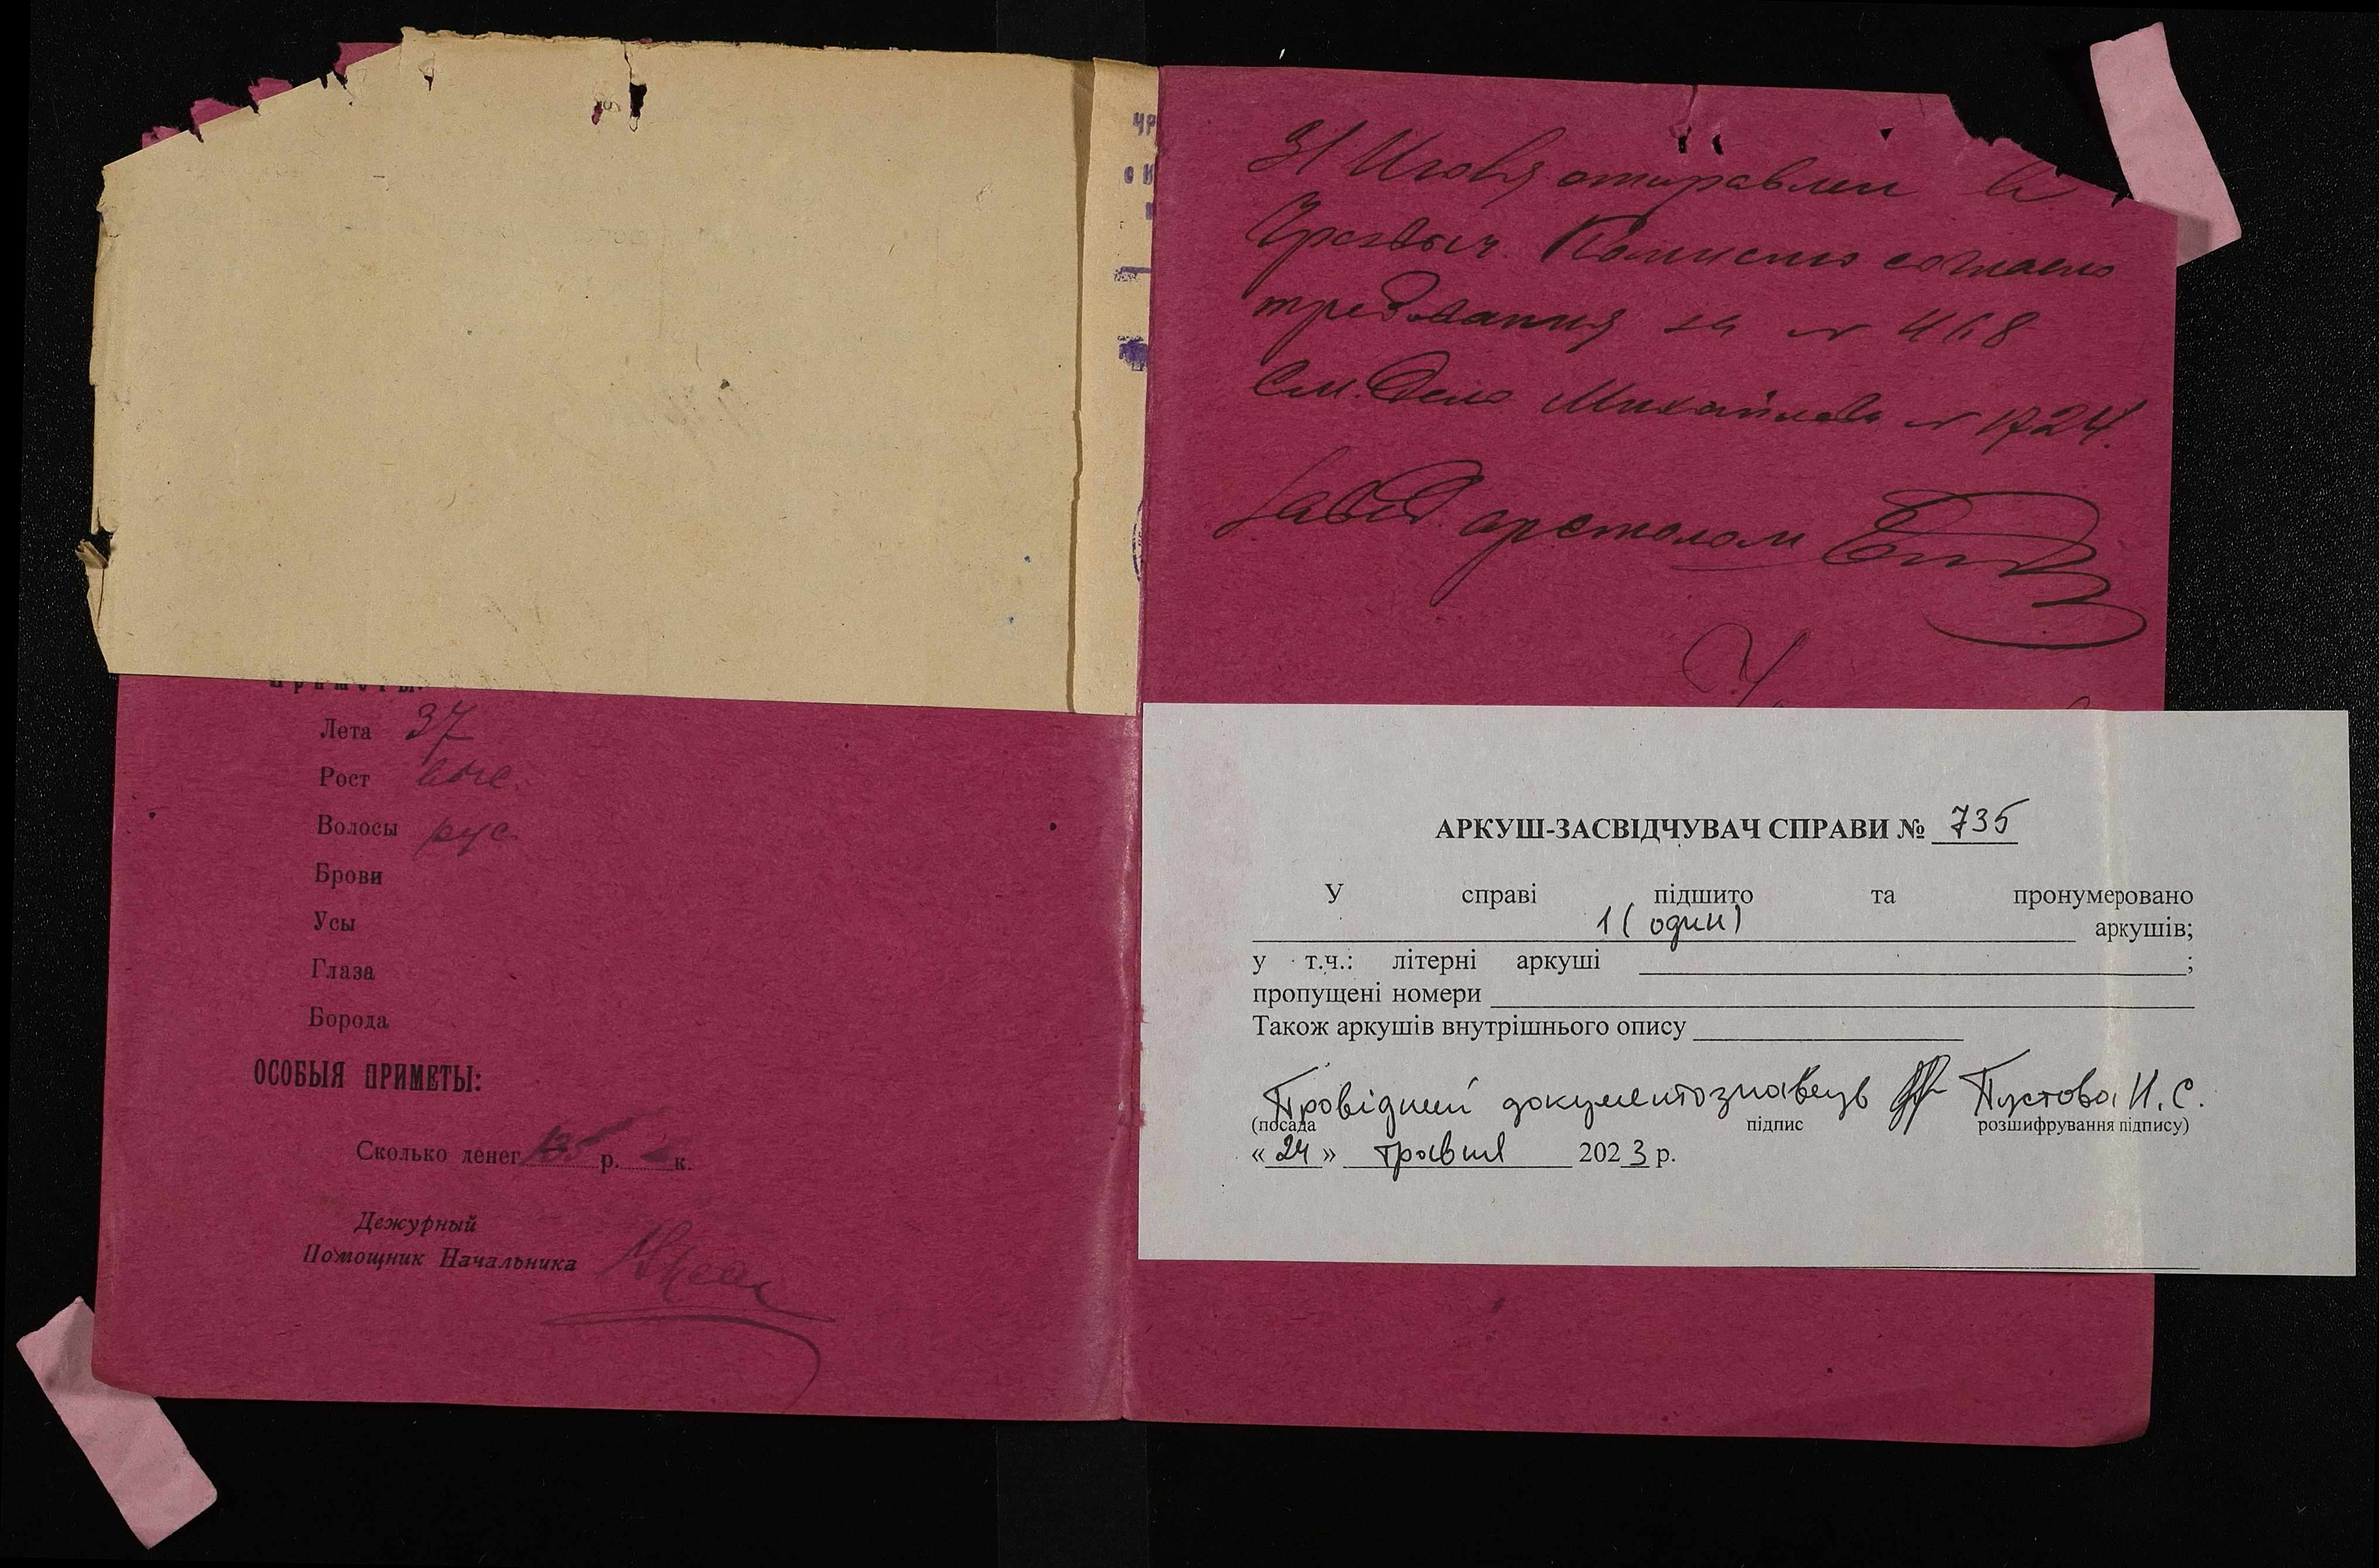 Приметы:
Лета 37
Рост выс.
Волосы рус.
Брови
Усы
Глаза
Борода
ОСОБЫЯ ПРИМЕТЫ:
Сколько денег 135 р. к.
Дежурный
Помощник Начальника
31 Июля отправлен в
Чрезвыч. Комисию согласно
требования за № 468
См. Дело Михайлова № 1724.
Завед арестолом
АРКУШ-ЗАСВІДЧУВАЧ СПРАВИ № 735
У справі підшито та пронумеровано
1 (один) аркушів;
у т.ч.: літерні аркуші ;
пропущені номери
Також аркушів внутрішнього опису
Провідний документознавець Пустова Н.С.
(посада підпис розшифрування підпису)
« 24 » травня 2023 р.